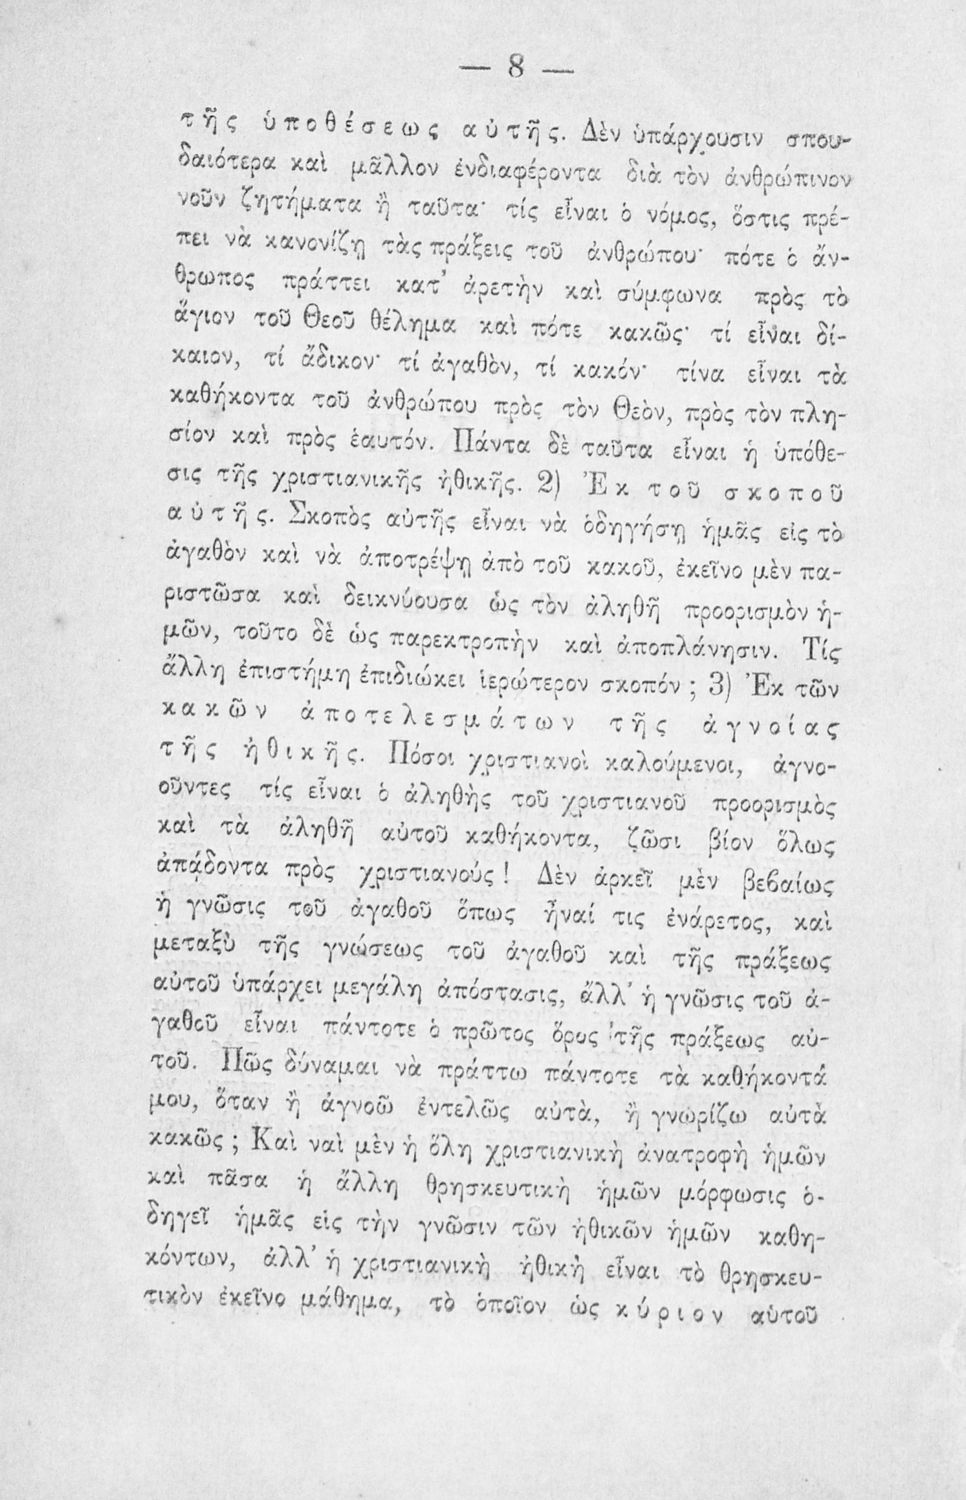 — 8 —
τῆς ὑποθέσεως αὐτῆς. Δὲν ὑπάρχουσιν σπου-
δαιότερα καὶ μᾶλλον ἐνδιαφέροντα διὰ τὸν ἀνθρώπινον
νοῦν ζητήματα ἢ ταῦτα· τίς εἶναι ὁ νόμος, ὅστις πρέ-
πει νὰ κανονίζῃ τὰς πράξεις τοῦ ἀνθρώπου· πότε ὁ ἄν-
θρωπος πράττει κατ’ ἀρετὴν καὶ σύμφωνα πρὸς τὸ
ἅγιον τοῦ Θεοῦ θέλημα καὶ πότε κακῶς· τί εἶναι δί-
καιον, τί ἄδικον· τί ἀγαθὸν, τί κακόν· τίνα εἶναι τὰ
καθήκοντα τοῦ ἀνθρώπου πρὸς τὸν Θεὸν, πρὸς τὸν πλη-
σίον καὶ πρὸς ἑαυτόν. Πάντα δὲ ταῦτα εἶναι ἡ ὑπόθε-
σις τῆς χριστιανικῆς ἠθικῆς. 2) Ἐκ τοῦ σκοποῦ
αὐτῆς. Σκοπὸς αὐτῆς εἶναι νὰ ὁδηγήσῃ ἡμᾶς εἰς τὸ
ἀγαθὸν καὶ νὰ ἀποτρέψῃ ἀπὸ τοῦ κακοῦ, ἐκεῖνο μὲν πα-
ριστῶσα καὶ δεικνύουσα ὡς τὸν ἀληθῆ προορισμὸν ἡ-
μῶν, τοῦτο δὲ ὡς παρεκτροπὴν καὶ ἀποπλάνησιν. Τίς
ἄλλη ἐπιστήμη ἐπιδιώκει ἱερώτερον σκοπόν ; 3) Ἐκ τῶν
κακῶν ἀποτελεσμάτων τῆς ἀγνοίας
τῆς ἠθικῆς. Πόσοι χριστιανοὶ καλούμενοι, ἀγνο-
οῦντες τίς εἶναι ὁ ἀληθὴς τοῦ χριστιανοῦ προορισμὸς
καὶ τὰ ἀληθῆ αὐτοῦ καθήκοντα, ζῶσι βίον ὅλως
ἀπᾴδοντα πρὸς χριστιανούς ! Δὲν ἀρκεῖ μὲν βεβαίως
ἡ γνῶσις τοῦ ἀγαθοῦ ὅπως ἦναί τις ἐνάρετος, καὶ
μεταξὺ τῆς γνώσεως τοῦ ἀγαθοῦ καὶ τῆς πράξεως
αὐτοῦ ὑπάρχει μεγάλη ἀπόστασις, ἀλλ’ ἡ γνῶσις τοῦ ἀ-
γαθοῦ εἶναι πάντοτε ὁ πρῶτος ὅρος τῆς πράξεως αὐ-
τοῦ. Πῶς δύναμαι νὰ πράττω πάντοτε τὰ καθήκοντά
μου, ὅταν ἢ ἀγνοῶ ἐντελῶς αὐτὰ, ἢ γνωρίζω αὐτὰ
κακῶς ; Καὶ ναὶ μὲν ἡ ὅλη χριστιανικὴ ἀνατροφὴ ἡμῶν
καὶ πᾶσα ἡ ἄλλη θρησκευτικὴ ἡμῶν μόρφωσις ὁ-
δηγεῖ ἡμᾶς εἰς τὴν γνῶσιν τῶν ἠθικῶν ἡμῶν καθη-
κόντων, ἀλλ’ ἡ χριστιανικὴ ἠθικὴ εἶναι τὸ θρησκευ-
τικὸν ἐκεῖνο μάθημα, τὸ ὁποῖον ὡς κύριον αὑτοῦ